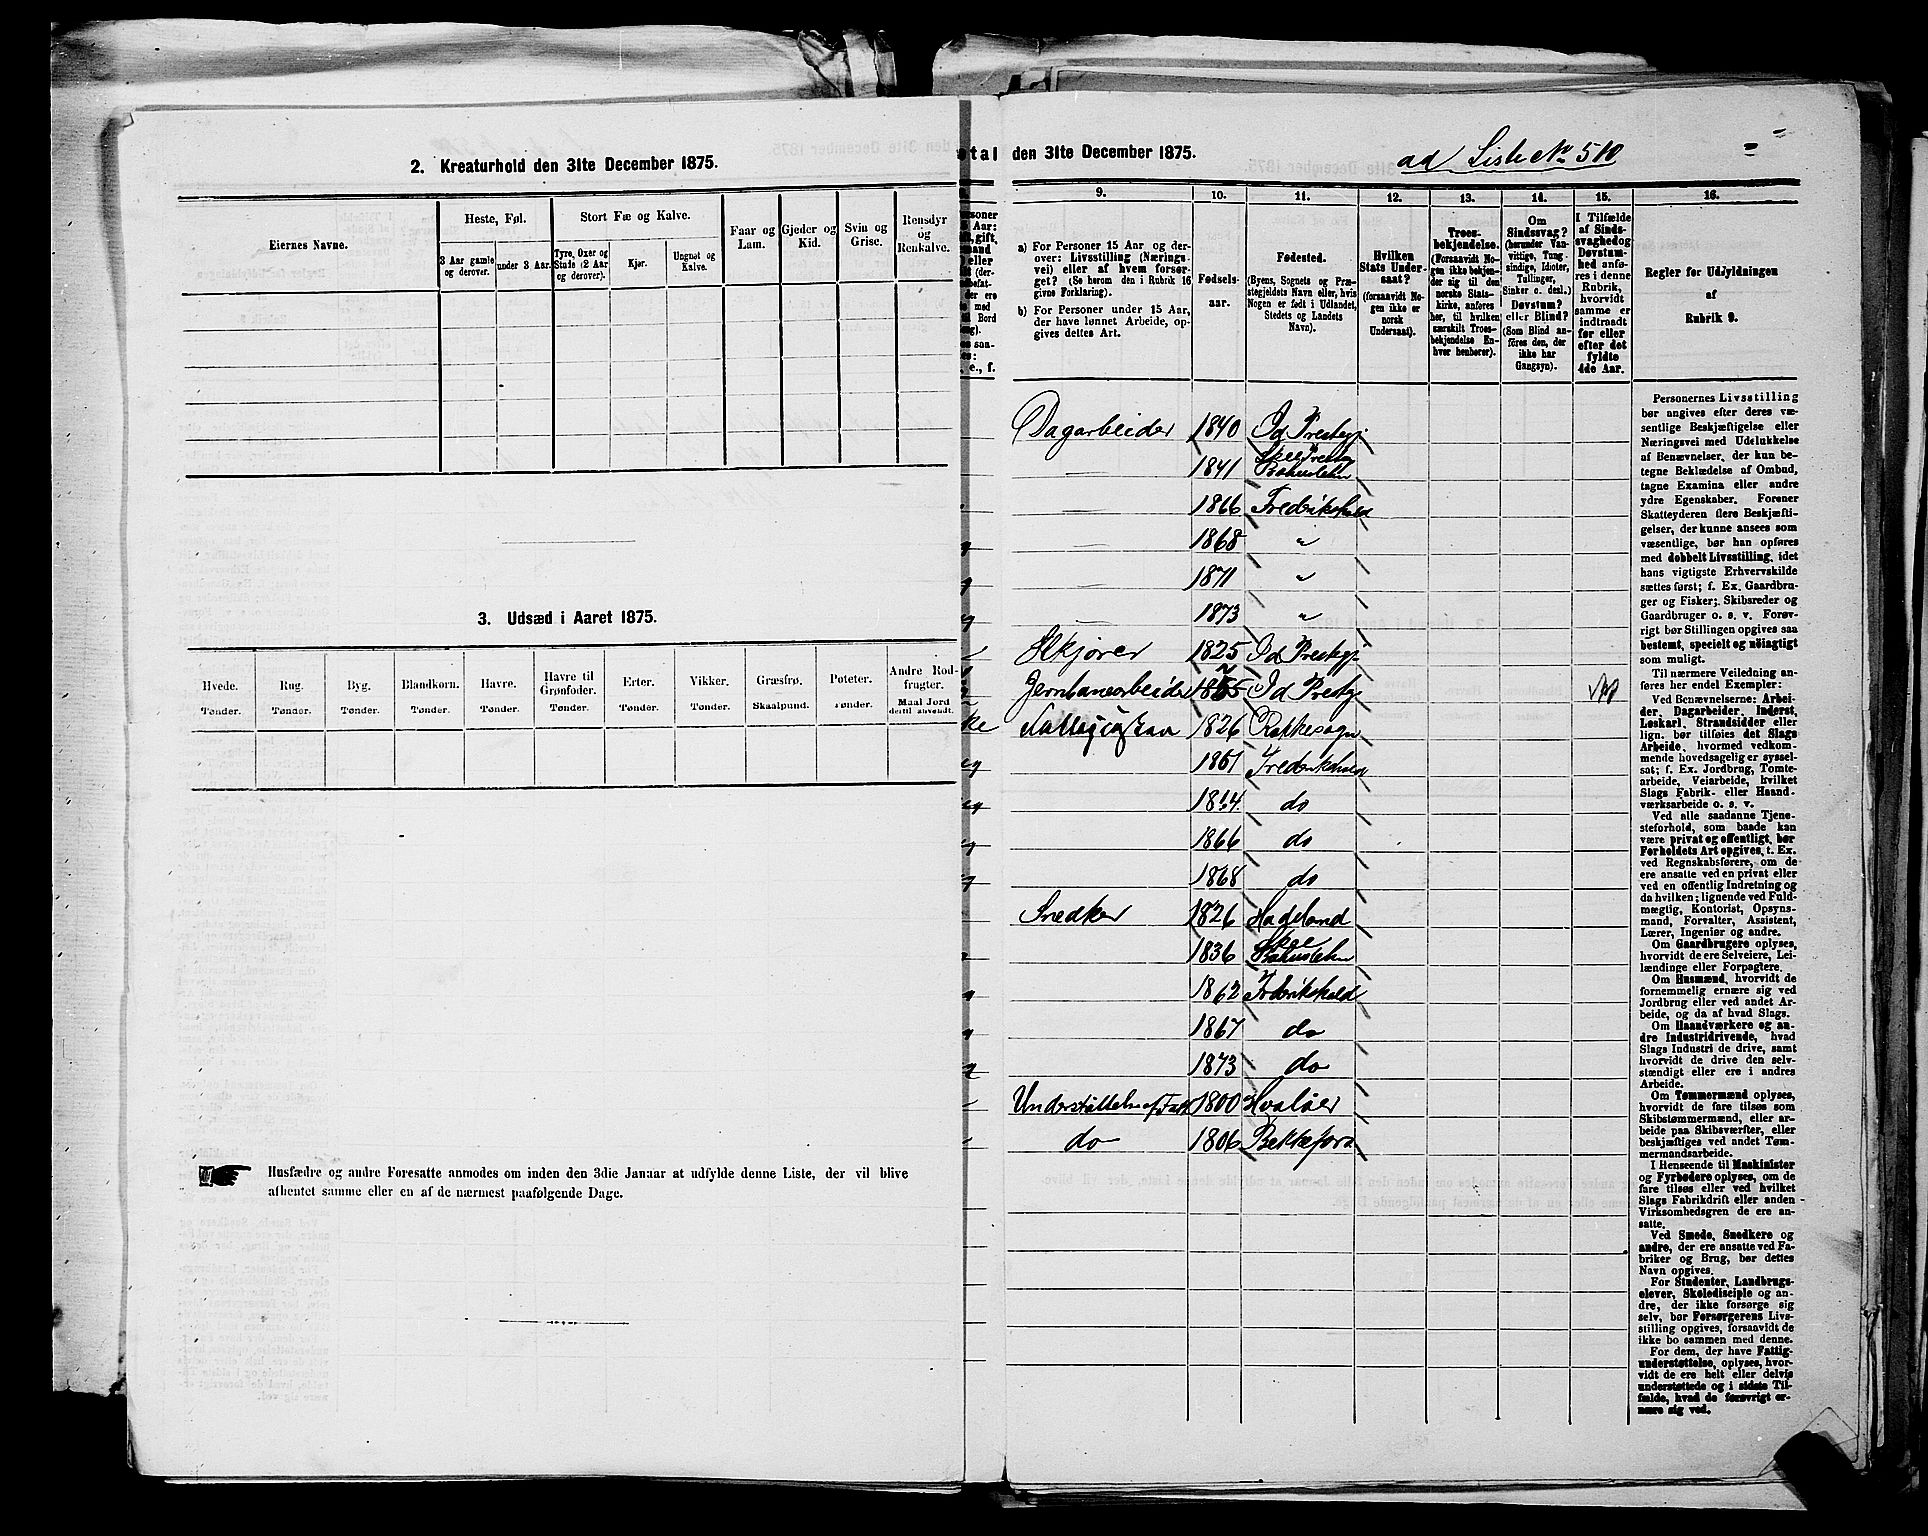 2. Kreaturhold den 31te December 1875.
Eiernes Navne.
Heste, Føl.
3 Aar gamle og derover.
under 3 Aar.
Stort Fæ og Kalve.
Tyre, Oxer og Stude (2 Aar og derover).
Kjør.
Ungnøt og Kalve.
Faar og Lam.
Gjeder og Kid.
Svin og Grise.
Rensdyr og Renkalve.
3. Udsæd i Aaret 1875.
Hvede. Tønder.
Rug. Tønder.
Byg. Tønder.
Blandkorn. Tønder.
Havre. Tønder.
Havre til Grønfoder. Tønder.
Erter. Tønder.
Vikker. Tønder.
Græsfrø. Skaalpund.
Poteter. Tønder.
Andre Rodfrugter. Maal Jord dertil anvendt.
Husfædre og andre Foresatte anmodes om inden den 3die Januar at udfylde denne Liste, der vil blive
afhentet samme eller en af de nærmest paafølgende Dage.
tal den 31te December 1875.
ad Liste No 510
9.
10.
11.
12.
13.
14.
15.
16.
a) For Personer 15 Aar og derover: Livsstilling (Næringsvei) eller af hvem forsørget? (Se herom den i Rubrik 16 givne Forklaring).
b) For Personer under 15 Aar, der have lønnet Arbeide, opgives dettes Art.
Fødselsaar.
Fødested.
(Byens, Sognets og Præstegjeldets Navn eller, hvis Nogen er født i Udlandet, Stedets og Landets Navn).
Hvilken Stats Undersaat?
(forsaavidt Nogen ikke er norsk Undersaat).
Troesbekjendelse.
(Forsaavidt Nogen ikke bekjender sig til den norske Statskirke, anføres her, til hvilken særskilt Troesbekjendelse Enhver henhører).
Om Sindssvag? (herunder Vanvittige, Tungsindige, Idioter, Tullinger, Sinker o. desl.) Døvstum? eller Blind? (Som Blind anføres den, der ikke har Gangsyn).
I Tilfælde af Sindssvaghed og Døvstumhed anføres i denne Rubrik, hvorvidt samme er indtraadt før eller efter det fyldte 4de Aar.
Regler for Udfyldningen
af
Rubrik 9.
Dagarbeider 1840 Id Prestegj
1841 Skee Prestg Bahuslehn
1866 Fredrikshald
1868 "
1871 "
1873 "
Skjører 1825 Id Prestegj
Jernbanearbeider Id Prestgj
1826 Rokkesogn
do
1866 do
1868 do
Snedker 1826 Hadeland
1836 Skee Bahuslehn
1862 Fredrikshald
1867 do
1873 do
Understøttelse af Fatt 1800 Hvaløer
do 1806
Personernes Livsstilling
bør angives efter deres væ-
sentlige Beskjæftigelse eller
Næringsvei med Udelukkelse
af Benævnelser, der kun be-
tegne Beklædelse af Ombud,
tagne Examina eller andre
ydre Egenskaber. Forener
Skatteyderen flere Beskjæfti-
gelser, der kunne ansees som
væsentlige, bør han opføres
med dobbelt Livsstilling, idet
hans vigtigste Erhvervskilde
sættes først; f. Ex. Gaardbru-
ger og Fisker; Skibsreder og
Gaardbruger o. s. v. Forøv-
rigt bør Stillingen opgives saa
bestemt, specielt og nøiagtigt
som muligt.
Til nærmere Veiledning an-
føres her endel Exempler:
Ved Benævnelserne: Arbei-
der, Dagarbeider, Inderst,
Løskarl, Strandsidder eller
lign. bør tilføies det Slags
Arbeide, hvormed vedkom-
mende hovedsagelig er syssel-
sat; f. Ex. Jordbrug, Tomte-
arbeide, Veiarbeide, hvilket
Slags Fabrik- eller Haand-
værksarbeide o. s. v.
Ved alle saadanne Tjene-
steforhold, som baade kan
være privat og offentligt, bør
Forholdets Art opgives, t. Ex.
ved Regnskabsførere, om de
ere ansatte ved en privat eller
ved en offentlig Indretning og
da hvilken; lignende ved Fuld-
mægtig, Kontorist, Opsyns-
mand, Forvalter, Assistent,
Lærer, Ingeniør og andre.
Om Gaardbrugere oplyses,
hvorvidt de ere Selveiere, Lei-
lændinge eller Forpagtere.
Om Husmænd, hvorvidt de
fornemmelig ernære sig ved
Jordbrug eller ved andet Ar-
beide, og da af hvad Slags.
Om Haandværkere og an-
dre Industridrivende, hvad
Slags Industri de drive, samt
hvorvidt de drive den selv-
stændigt eller ere i andres
Arbeide.
Om Tømmermænd oplyses,
hvorvidt de fare tilsøs som
Skibstømmermænd, eller ar-
beide paa Skibsværfter, eller
beskjæftiges ved andet Tøm-
mermandsarbeide.
I Henseende til Maskinister
og Fyrbødere oplyses, om de
fare tilsøs eller ved hvilket
Slags Fabrikdrift eller anden
Virksomhedsgren de ere an-
satte.
Ved Smede, Snedkere og
andre, der ere ansatte ved Fa-
briker og Brug, bør dettes
Navn opgives.
For Studenter, Landbrugs-
elever, Skoledisciple og an-
dre, der ikke forsørge sig
selv, bør Forsørgerens Livs-
stilling opgives, forsaavidt de
ikke bo sammen med denne.
For dem, der have Fattig-
understøttelse, oplyses, hvor-
vidt de ere helt eller delvis
understøttede og i sidste Til-
fælde, hvad de forøvrigt er-
nære sig ved.